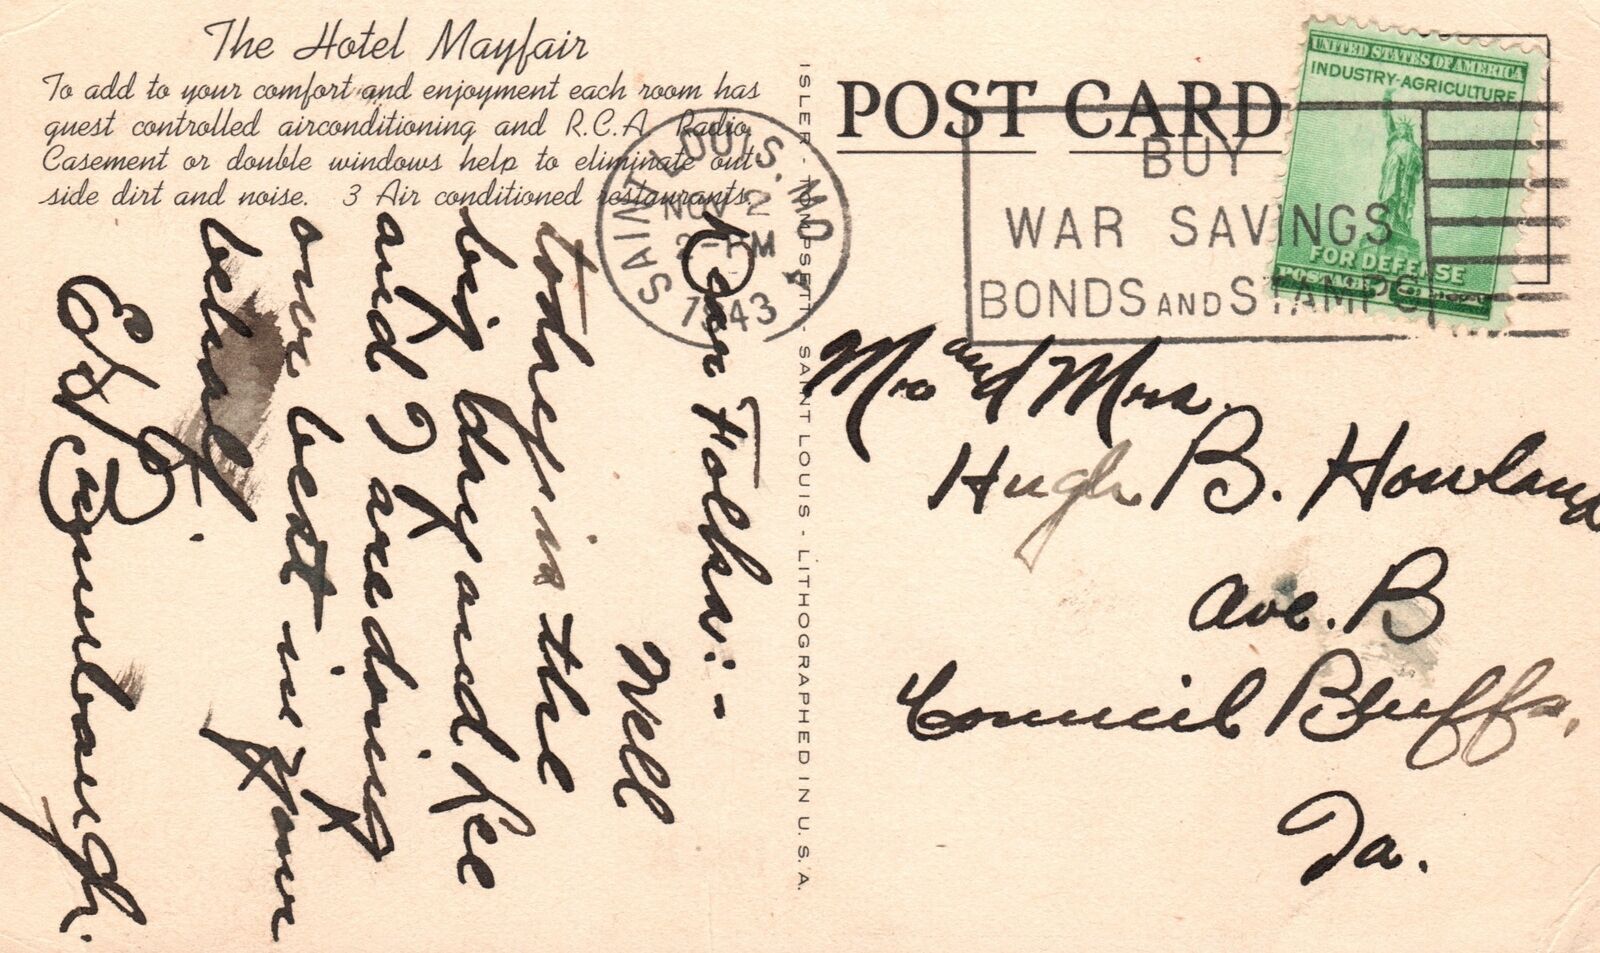 The Hotel Mayfair
To add to your comfort and enjoyment each room has
guest controlled airconditioning and R.C.A. Radio.
Casement or double windows help to eliminate out
side dirt and noise. 3 Air conditioned restaurants.
Dear Folks:-
Well
today is the
big day and Lee
and I are doing
our best in your
behalf.
E. J. Brumbaugh.
ISLER - TOMPSETT - SAINT LOUIS - LITHOGRAPHED IN U.S.A.
POST CARD
SAINT LOUIS, MO.
NOV 2
2-PM
1943
BUY
WAR SAVINGS
BONDS AND STAMPS
UNITED STATES OF AMERICA
INDUSTRY-AGRICULTURE
FOR DEFENSE
POSTAGE
Mr. and Mrs.
Hugh B. Howland
Ave. B
Council Bluffs,
Ia.